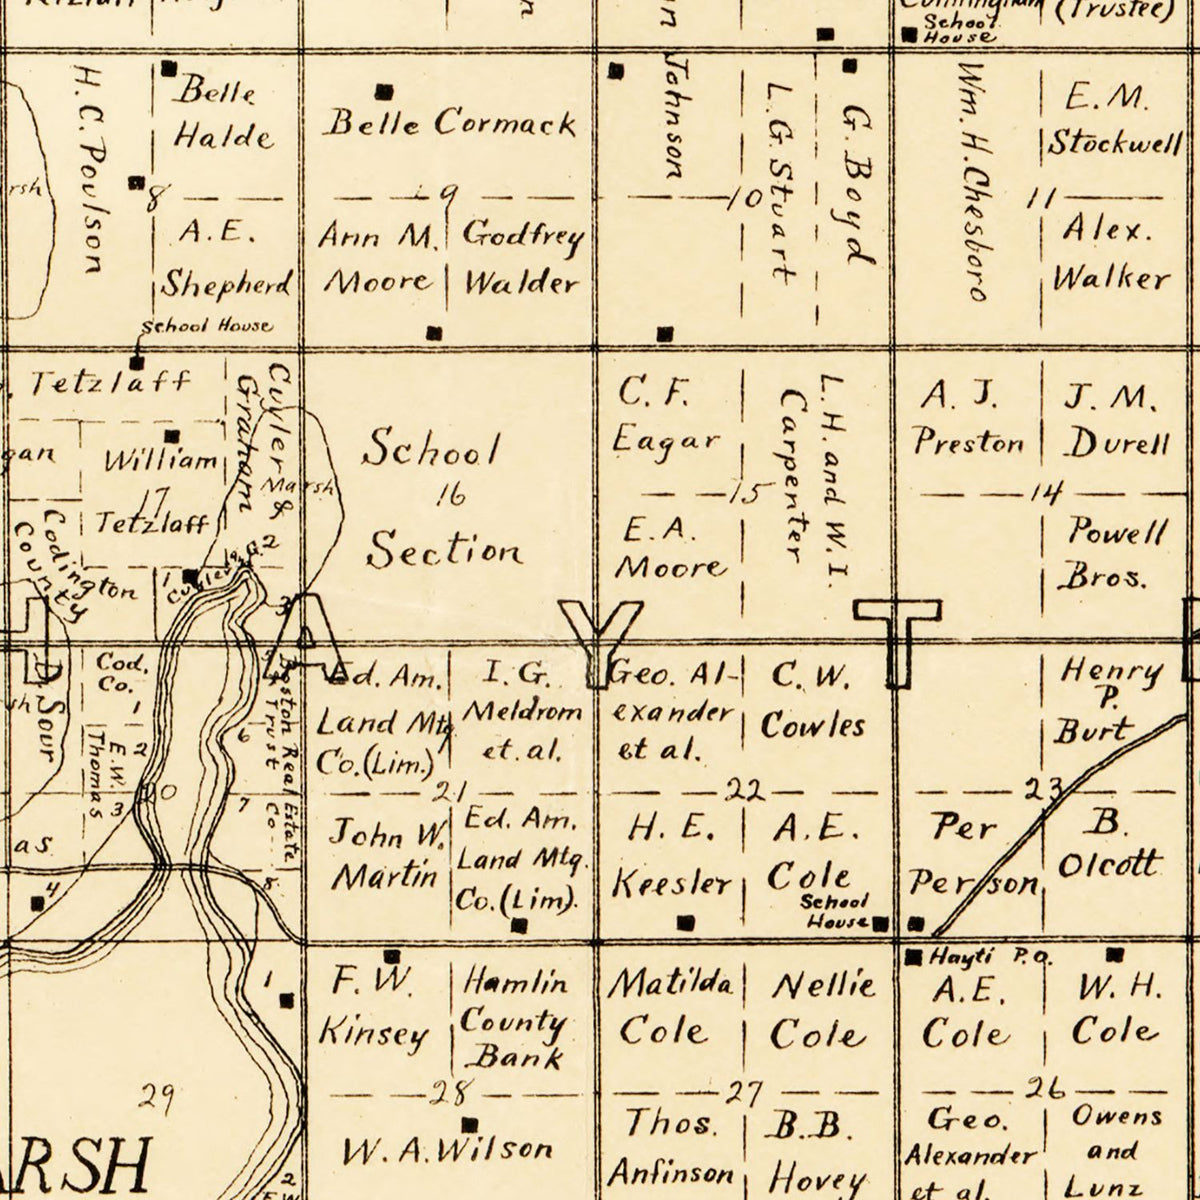 Cunningham
School
House
(Trustee)
H. C. Poulson
Belle
Halde
8
A. E.
Shepherd
School House
Belle Cormack
9
Ann M.
Moore
Godfrey
Walder
Johnson
L. G. Stuart
G. Boyd
10
Wm. H. Chesboro
E. M.
Stockwell
11
Alex.
Walker
Tetzlaff
William
17
Tetzlaff
Cuyler &
Graham
Marsh
Codington
County
1
2
3
School
16
Section
C. F.
Eagar
15
E. A.
Moore
L. H. and W. I.
Carpenter
A. J.
Preston
J. M.
Durell
14
Powell
Bros.
A Y T
Cod.
Co.
1
2
E. W.
Thomas
3
20
4
Boston Real Estate
Trust Co.
6
7
8
Ed. Am.
Land Mtg.
Co. (Lim.)
I. G.
Meldrom
et. al.
21
John W.
Martin
Ed. Am.
Land Mtg.
Co. (Lim).
Geo. Al-
exander
et al.
C. W.
Cowles
22
H. E.
Keesler
A. E.
Cole
School
House
Henry
P.
Burt
23
Per
Person
B.
Olcott
Hayti P.O.
1
29
ARSH
2
F. W.
Kinsey
Hamlin
County
Bank
28
W. A. Wilson
Matilda
Cole
Nellie
Cole
27
Thos.
Anfinson
B. B.
Hovey
A. E.
Cole
W. H.
Cole
26
Geo.
Alexander
et al.
Owens
and
Lunz